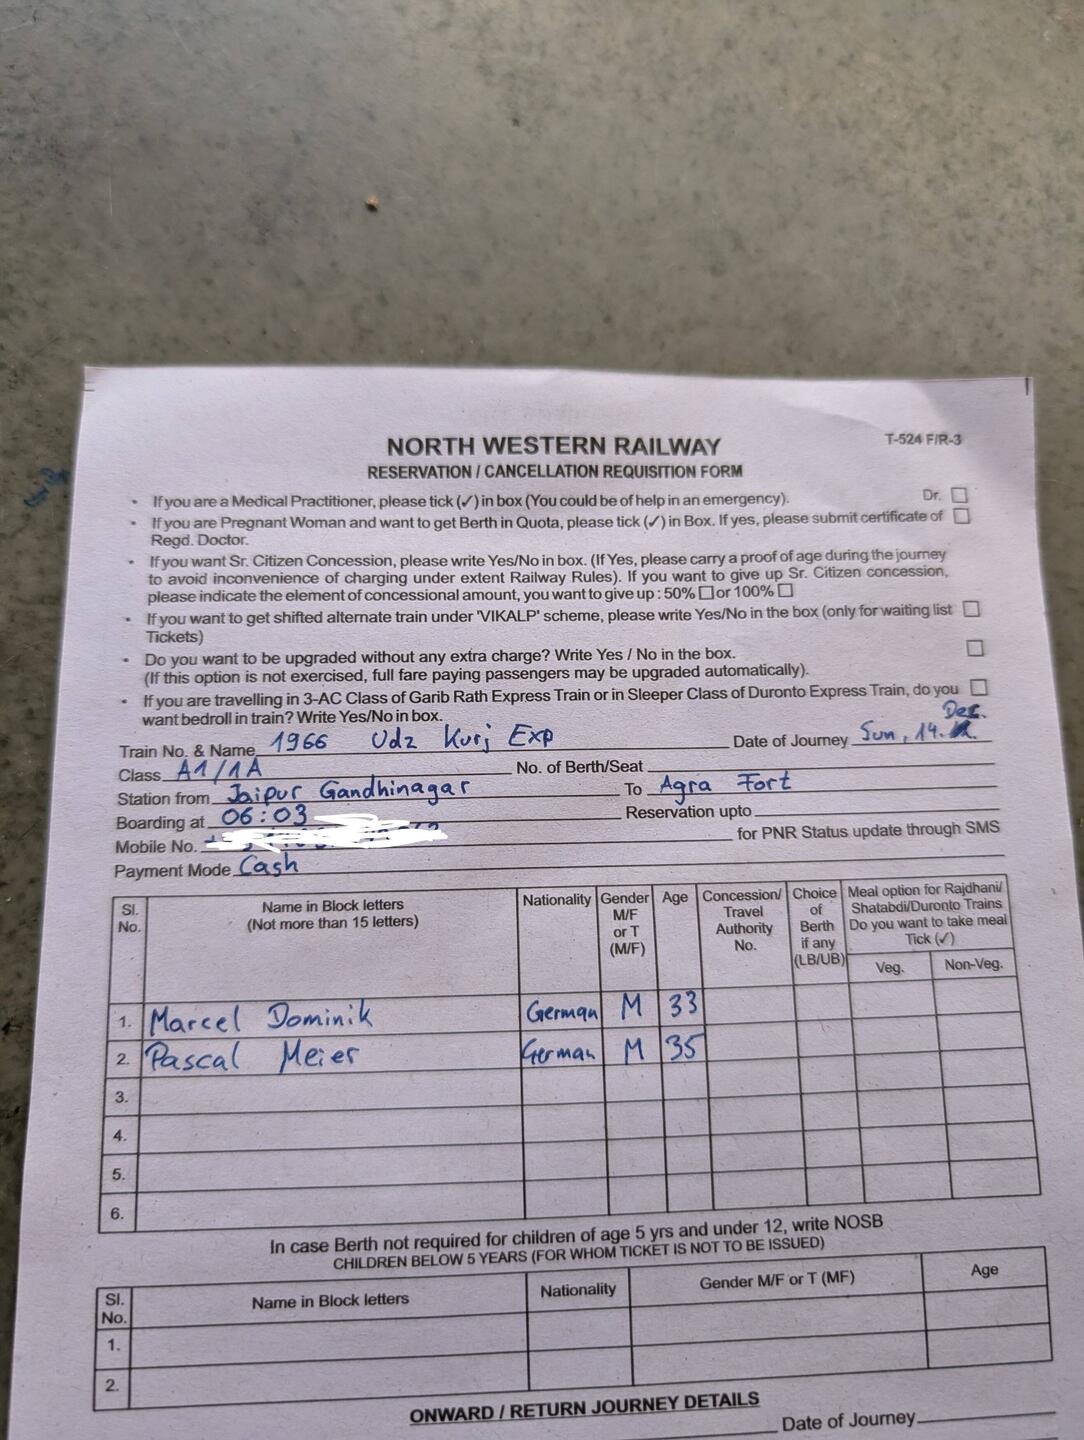 T-524 F/R-3
NORTH WESTERN RAILWAY
RESERVATION / CANCELLATION REQUISITION FORM
• If you are a Medical Practitioner, please tick (✓) in box (You could be of help in an emergency). Dr. ☐
• If you are Pregnant Woman and want to get Berth in Quota, please tick (✓) in Box. If yes, please submit certificate of ☐
Regd. Doctor.
• If you want Sr. Citizen Concession, please write Yes/No in box. (If Yes, please carry a proof of age during the journey
to avoid inconvenience of charging under extent Railway Rules). If you want to give up Sr. Citizen concession,
please indicate the element of concessional amount, you want to give up : 50% ☐ or 100% ☐
• If you want to get shifted alternate train under 'VIKALP' scheme, please write Yes/No in the box (only for waiting list ☐
Tickets)
• Do you want to be upgraded without any extra charge? Write Yes / No in the box. ☐
(If this option is not exercised, full fare paying passengers may be upgraded automatically).
• If you are travelling in 3-AC Class of Garib Rath Express Train or in Sleeper Class of Duronto Express Train, do you ☐
want bedroll in train? Write Yes/No in box.
Train No. & Name 1966 Udz Kurj Exp Date of Journey Sun, 14. Dec.
Class A1/1A No. of Berth/Seat
Station from Jaipur Gandhinagar To Agra Fort
Boarding at 06:03 Reservation upto
Mobile No. for PNR Status update through SMS
Payment Mode Cash
Sl. No. Name in Block letters (Not more than 15 letters) Nationality Gender M/F or T (M/F) Age Concession/ Travel Authority No. Choice of Berth if any (LB/UB) Meal option for Rajdhani/ Shatabdi/Duronto Trains Do you want to take meal Tick (✓)
Veg. Non-Veg.
1. Marcel Dominik German M 33
2. Pascal Meier German M 35
3.
4.
5.
6.
In case Berth not required for children of age 5 yrs and under 12, write NOSB
CHILDREN BELOW 5 YEARS (FOR WHOM TICKET IS NOT TO BE ISSUED)
Sl. No. Name in Block letters Nationality Gender M/F or T (MF) Age
1.
2.
ONWARD / RETURN JOURNEY DETAILS
Date of Journey